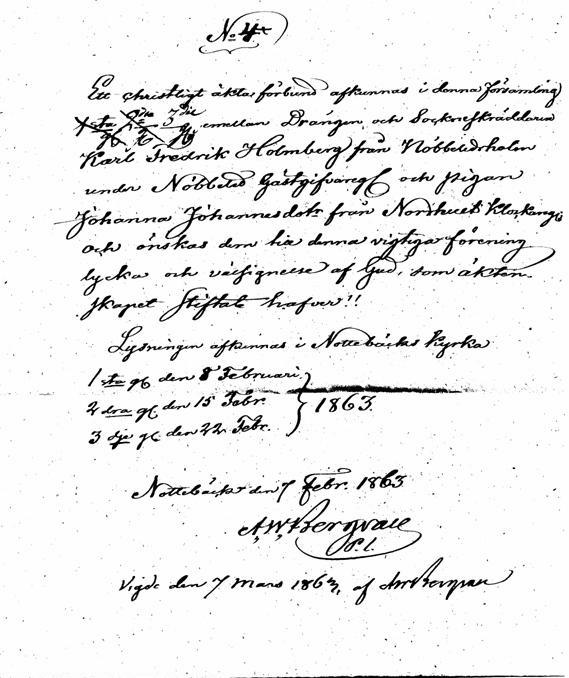 No 4
Ett christligt äkta förbund afkunnas i denna församling
1 sta g 2 dra g 3 dje g emellan Drängen och Sockneskräddaren
Karl Fredrik Holmberg från Nöbbeledshalen
under Nöbbeled Gästgifvareg och pigan
Johanna Johannesdotr från Nordhult Klockareg
och önskas dem till denna vigtiga förening
lycka och välsignelse af Gud, som äkten-
skapet Stiftat hafver!!
Lysningen afkunnas i Nottebäcks Kyrka
1 sta g den 8 Februari
2 dra g den 15 Febr. } 1863
3 dje g den 22 Febr.
Nottebäck den 7 Febr. 1863
A. W. Bergvall
P. l.
Vigde den 7 Mars 1863, af AWBergvall